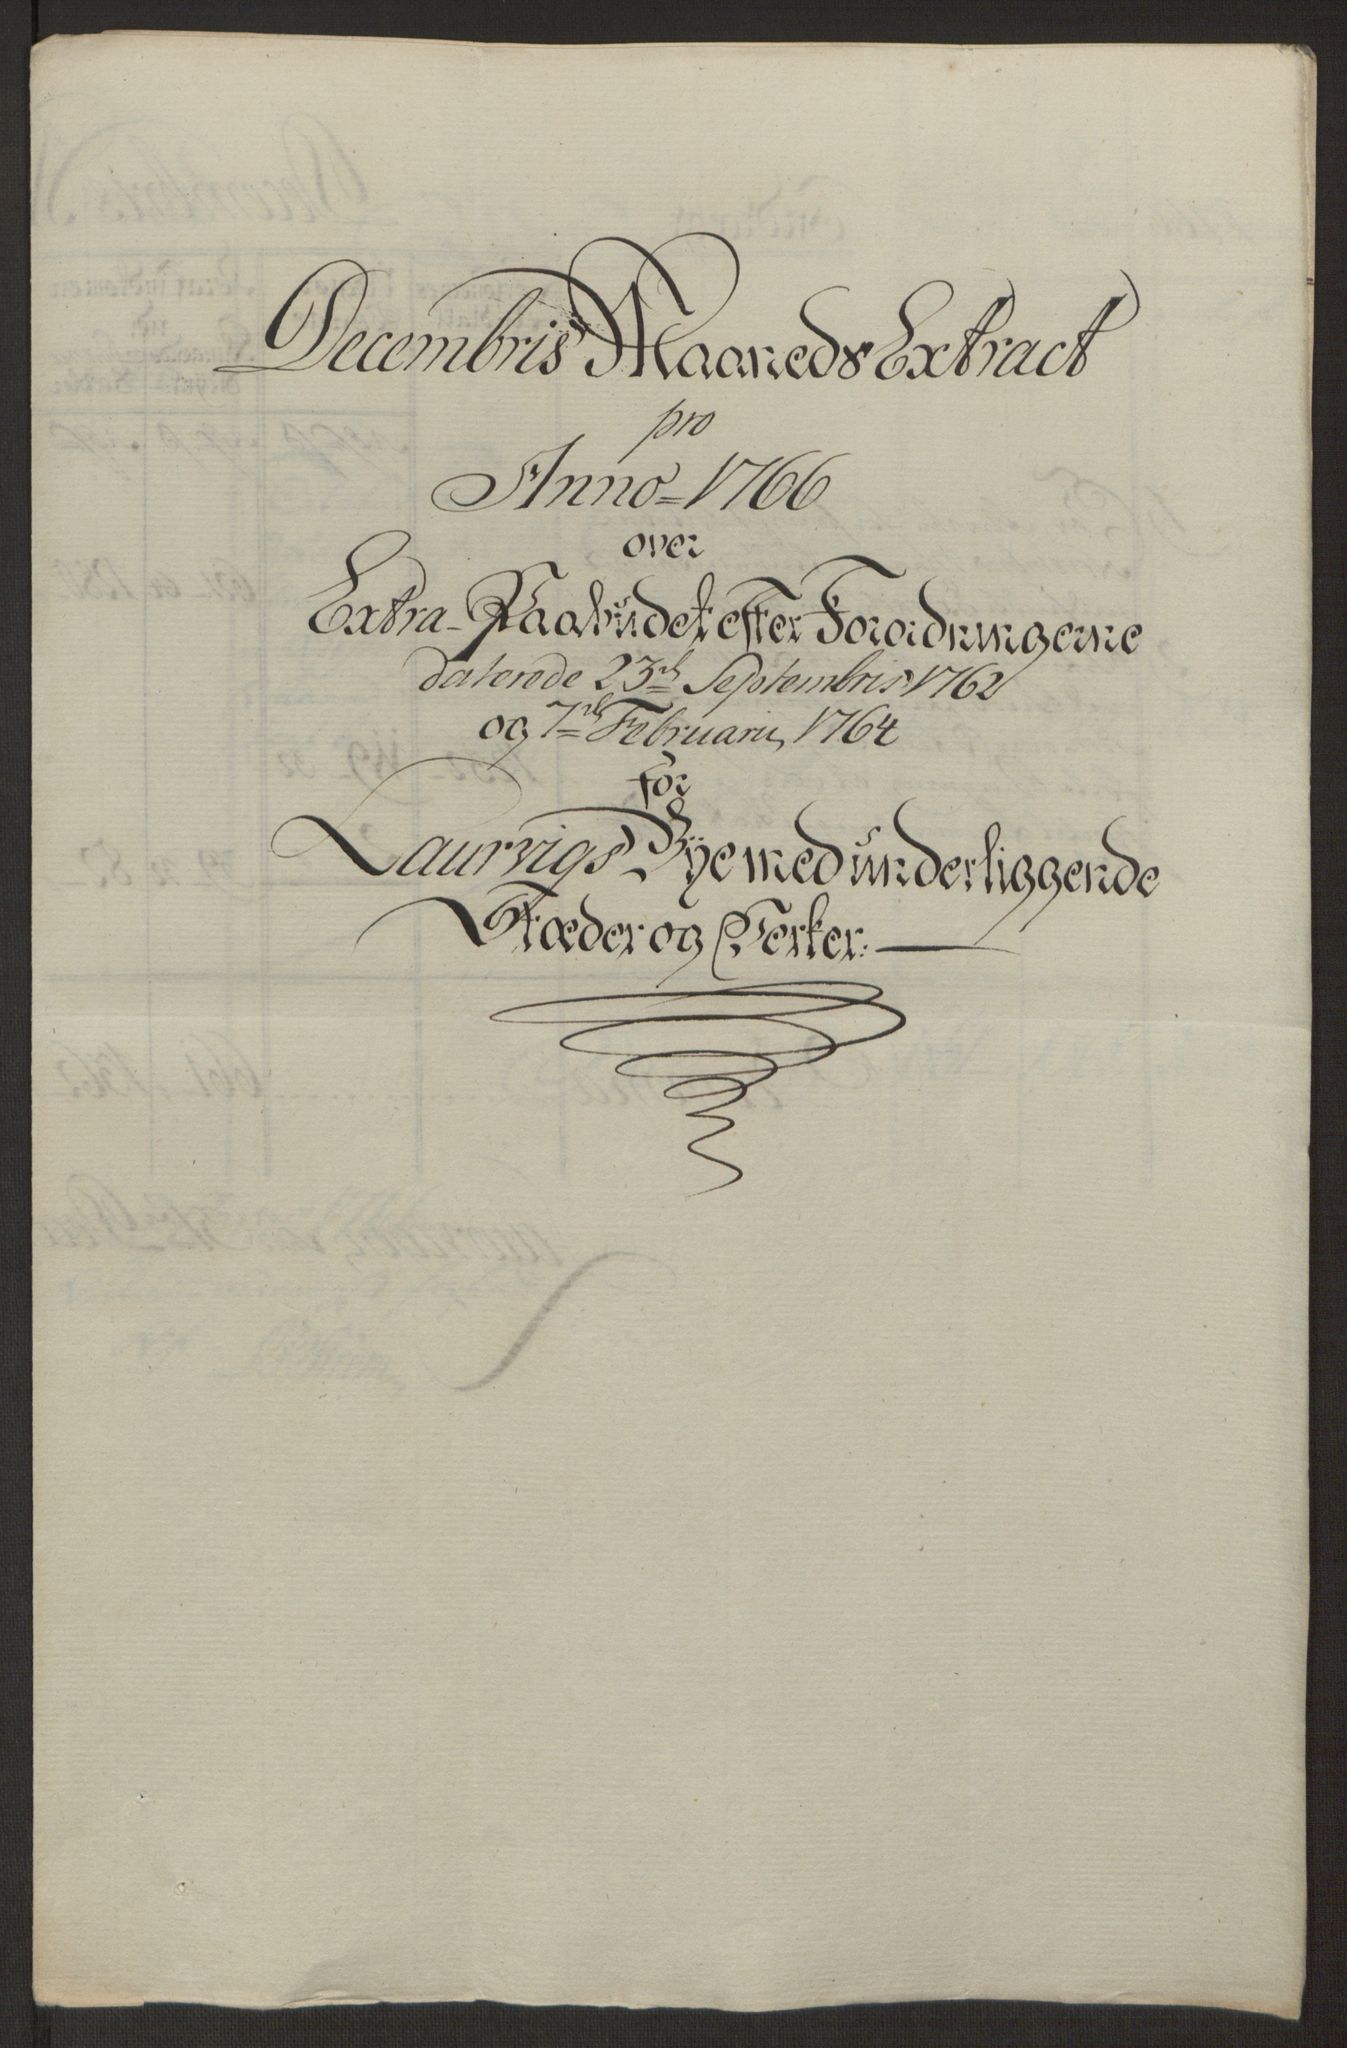 Decembris Maaneds Extract
pro
Anno 1766
over
Extra-Paabudet efter Forordningerne
daterede 23de Septembris 1762
og 7de Februarii 1764
for
Laurvigs Bye med underliggende
Stæder og Verker.